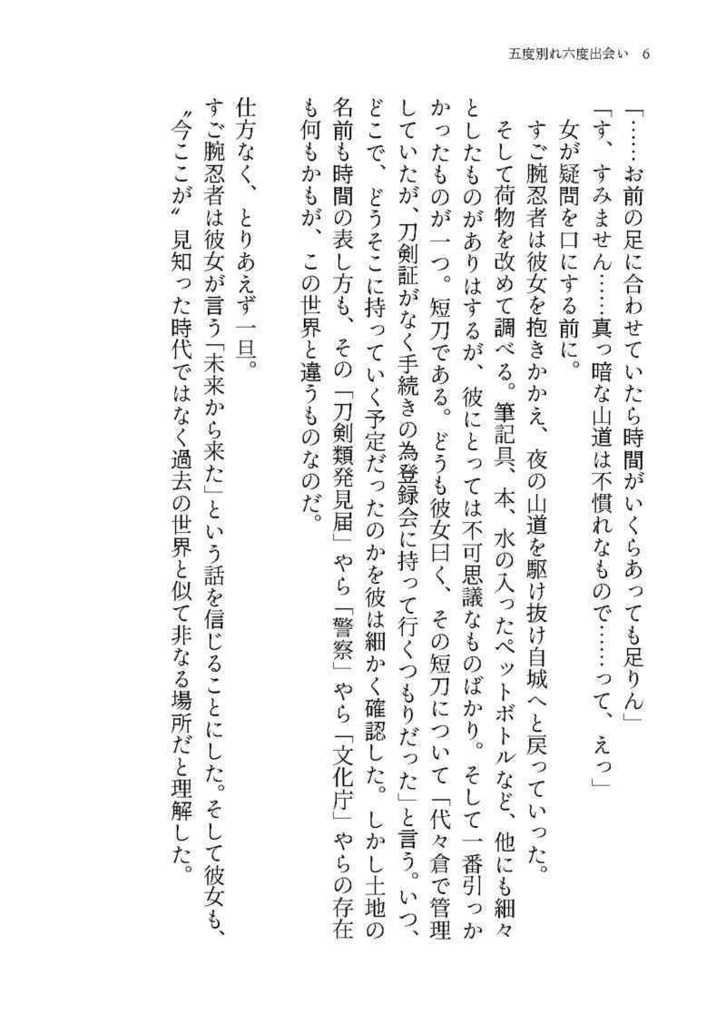 五度別れ六度出会い 6
「……お前の足に合わせていたら時間がいくらあっても足りん」
「す、すみません……真っ暗な山道は不慣れなもので……って、えっ」
女が疑問を口にする前に。
すご腕忍者は彼女を抱きかかえ、夜の山道を駆け抜け自城へと戻っていった。
そして荷物を改めて調べる。筆記具、本、水の入ったペットボトルなど、他にも細々
としたものがありはするが、彼にとっては不可思議なものばかり。そして一番引っか
かったものが一つ。短刀である。どうも彼女曰く、その短刀について「代々倉で管理
していたが、刀剣証がなく手続きの為登録会に持って行くつもりだった」と言う。いつ、
どこで、どうそこに持っていく予定だったのかを彼は細かく確認した。しかし土地の
名前も時間の表し方も、その「刀剣類発見届」やら「警察」やら「文化庁」やらの存在
も何もかもが、この世界と違うものなのだ。
仕方なく、とりあえず一旦。
すご腕忍者は彼女が言う「未来から来た」という話を信じることにした。そして彼女も、
〝今ここが〟見知った時代ではなく過去の世界と似て非なる場所だと理解した。